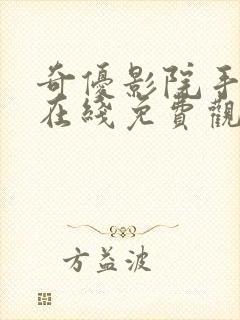 奇優影院手
在綫免費觀
方益波